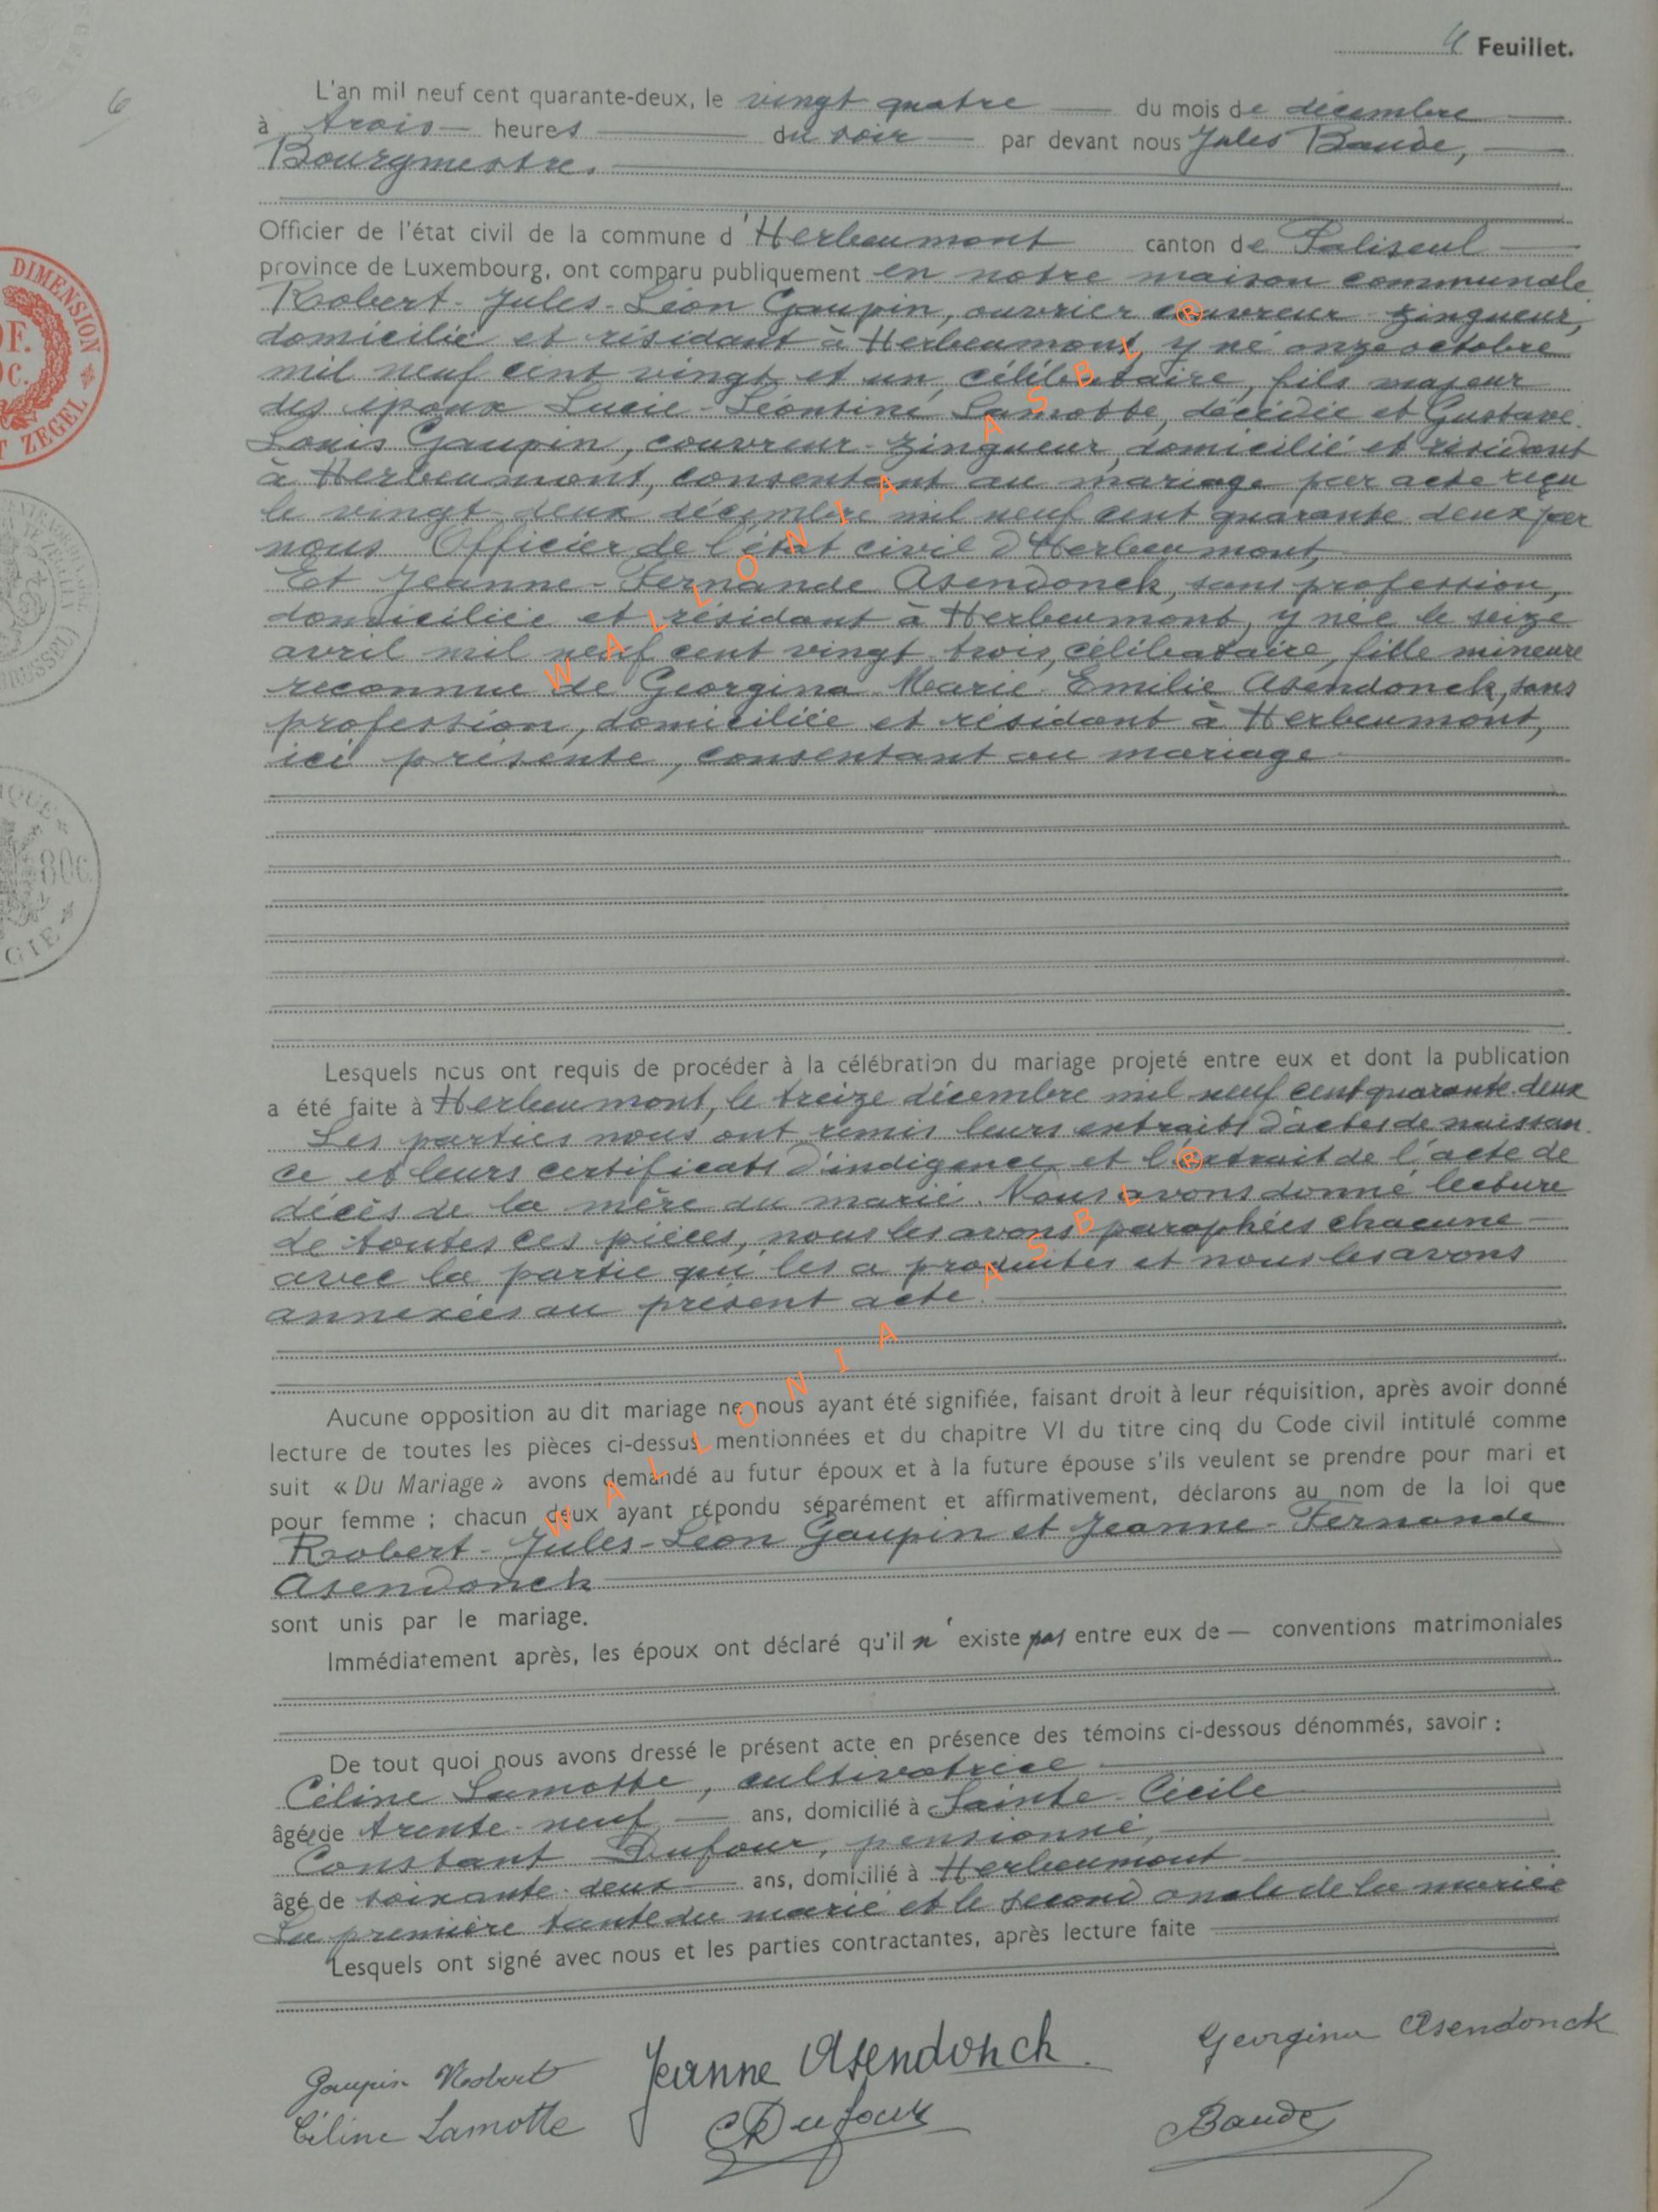 4 Feuillet.
6
L'an mil neuf cent quarante-deux, le vingt quatre du mois de décembre
à trois heures du soir par devant nous Jules Baude,
Bourgmestre.
Officier de l'état civil de la commune d'Herbeumont canton de Paliseul
province de Luxembourg, ont comparu publiquement en notre maison communale
Robert-Jules-Léon Gaupin, ouvrier couvreur-zingueur,
domicilié et résidant à Herbeumont, y né onze octobre
mil neuf cent vingt et un, célibataire, fils majeur
des époux Lucie-Léontine Lamotte, décédée et Gustave
Louis Gaupin, couvreur-zingueur, domicilié et résidant
à Herbeumont, consentant au mariage par acte reçu
le vingt-deux décembre mil neuf cent quarante deux par
nous Officier de l'état civil d'Herbeumont,
Et Jeanne-Fernande Asendonck, sans profession,
domiciliée et résidant à Herbeumont, y née le seize
avril mil neuf cent vingt-trois, célibataire, fille mineure
reconnue de Georgina Marie Emilie Asendonck, sans
profession, domiciliée et résidant à Herbeumont,
ici présente, consentant au mariage
Lesquels nous ont requis de procéder à la célébration du mariage projeté entre eux et dont la publication
a été faite à Herbeumont, le treize décembre mil neuf cent quarante deux
Les parties nous ont remis leurs extraits d'actes de naissan
ce et leurs certificats d'indigence et l'extrait de l'acte de
décès de la mère du marié. Nous avons donné lecture
de toutes ces pièces, nous les avons paraphées chacune
avec la partie qui les a produites et nous les avons
annexées au présent acte.
Aucune opposition au dit mariage ne nous ayant été signifiée, faisant droit à leur réquisition, après avoir donné
lecture de toutes les pièces ci-dessus mentionnées et du chapitre VI du titre cinq du Code civil intitulé comme
suit « Du Mariage » avons demandé au futur époux et à la future épouse s'ils veulent se prendre pour mari et
pour femme ; chacun deux ayant répondu séparément et affirmativement, déclarons au nom de la loi que
Robert-Jules-Léon Gaupin et Jeanne-Fernande
Asendonck
sont unis par le mariage.
Immédiatement après, les époux ont déclaré qu'il n'existe pas entre eux de conventions matrimoniales
De tout quoi nous avons dressé le présent acte en présence des témoins ci-dessous dénommés, savoir :
Céline Lamotte, cultivatrice
âgée de trente-neuf ans, domicilié à Sainte-Cécile
Constant Dufour, pensionné,
âgé de soixante-deux ans, domicilié à Herbeumont
La première tante du marié et le second oncle de la mariée
Lesquels ont signé avec nous et les parties contractantes, après lecture faite
Gaupin Robert Jeanne Asendonck. Georgina Asendonck
Céline Lamotte CDufour Baude
DIMENSION
ZEGEL
80c
GIE
WALLONIA ASBL ®
WALLONIA ASBL ®